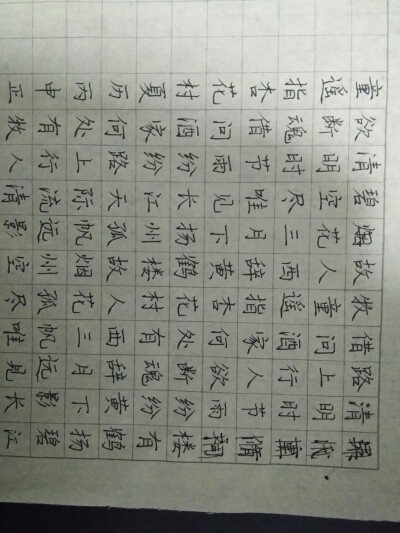 楼有鹤扬碧江
清明时节雨纷纷黄下影长
路上行人欲断魂辞月远见
借问酒家何处有西三帆唯
牧童遥指杏花村人花孤尽
故人西辞黄鹤楼故烟州空
烟花三月下扬州孤帆远影
碧空尽唯见长江天际流清
清明时节雨纷纷路上行人
欲断魂借问酒家何处有牧
童遥指杏花村夏历丙申正